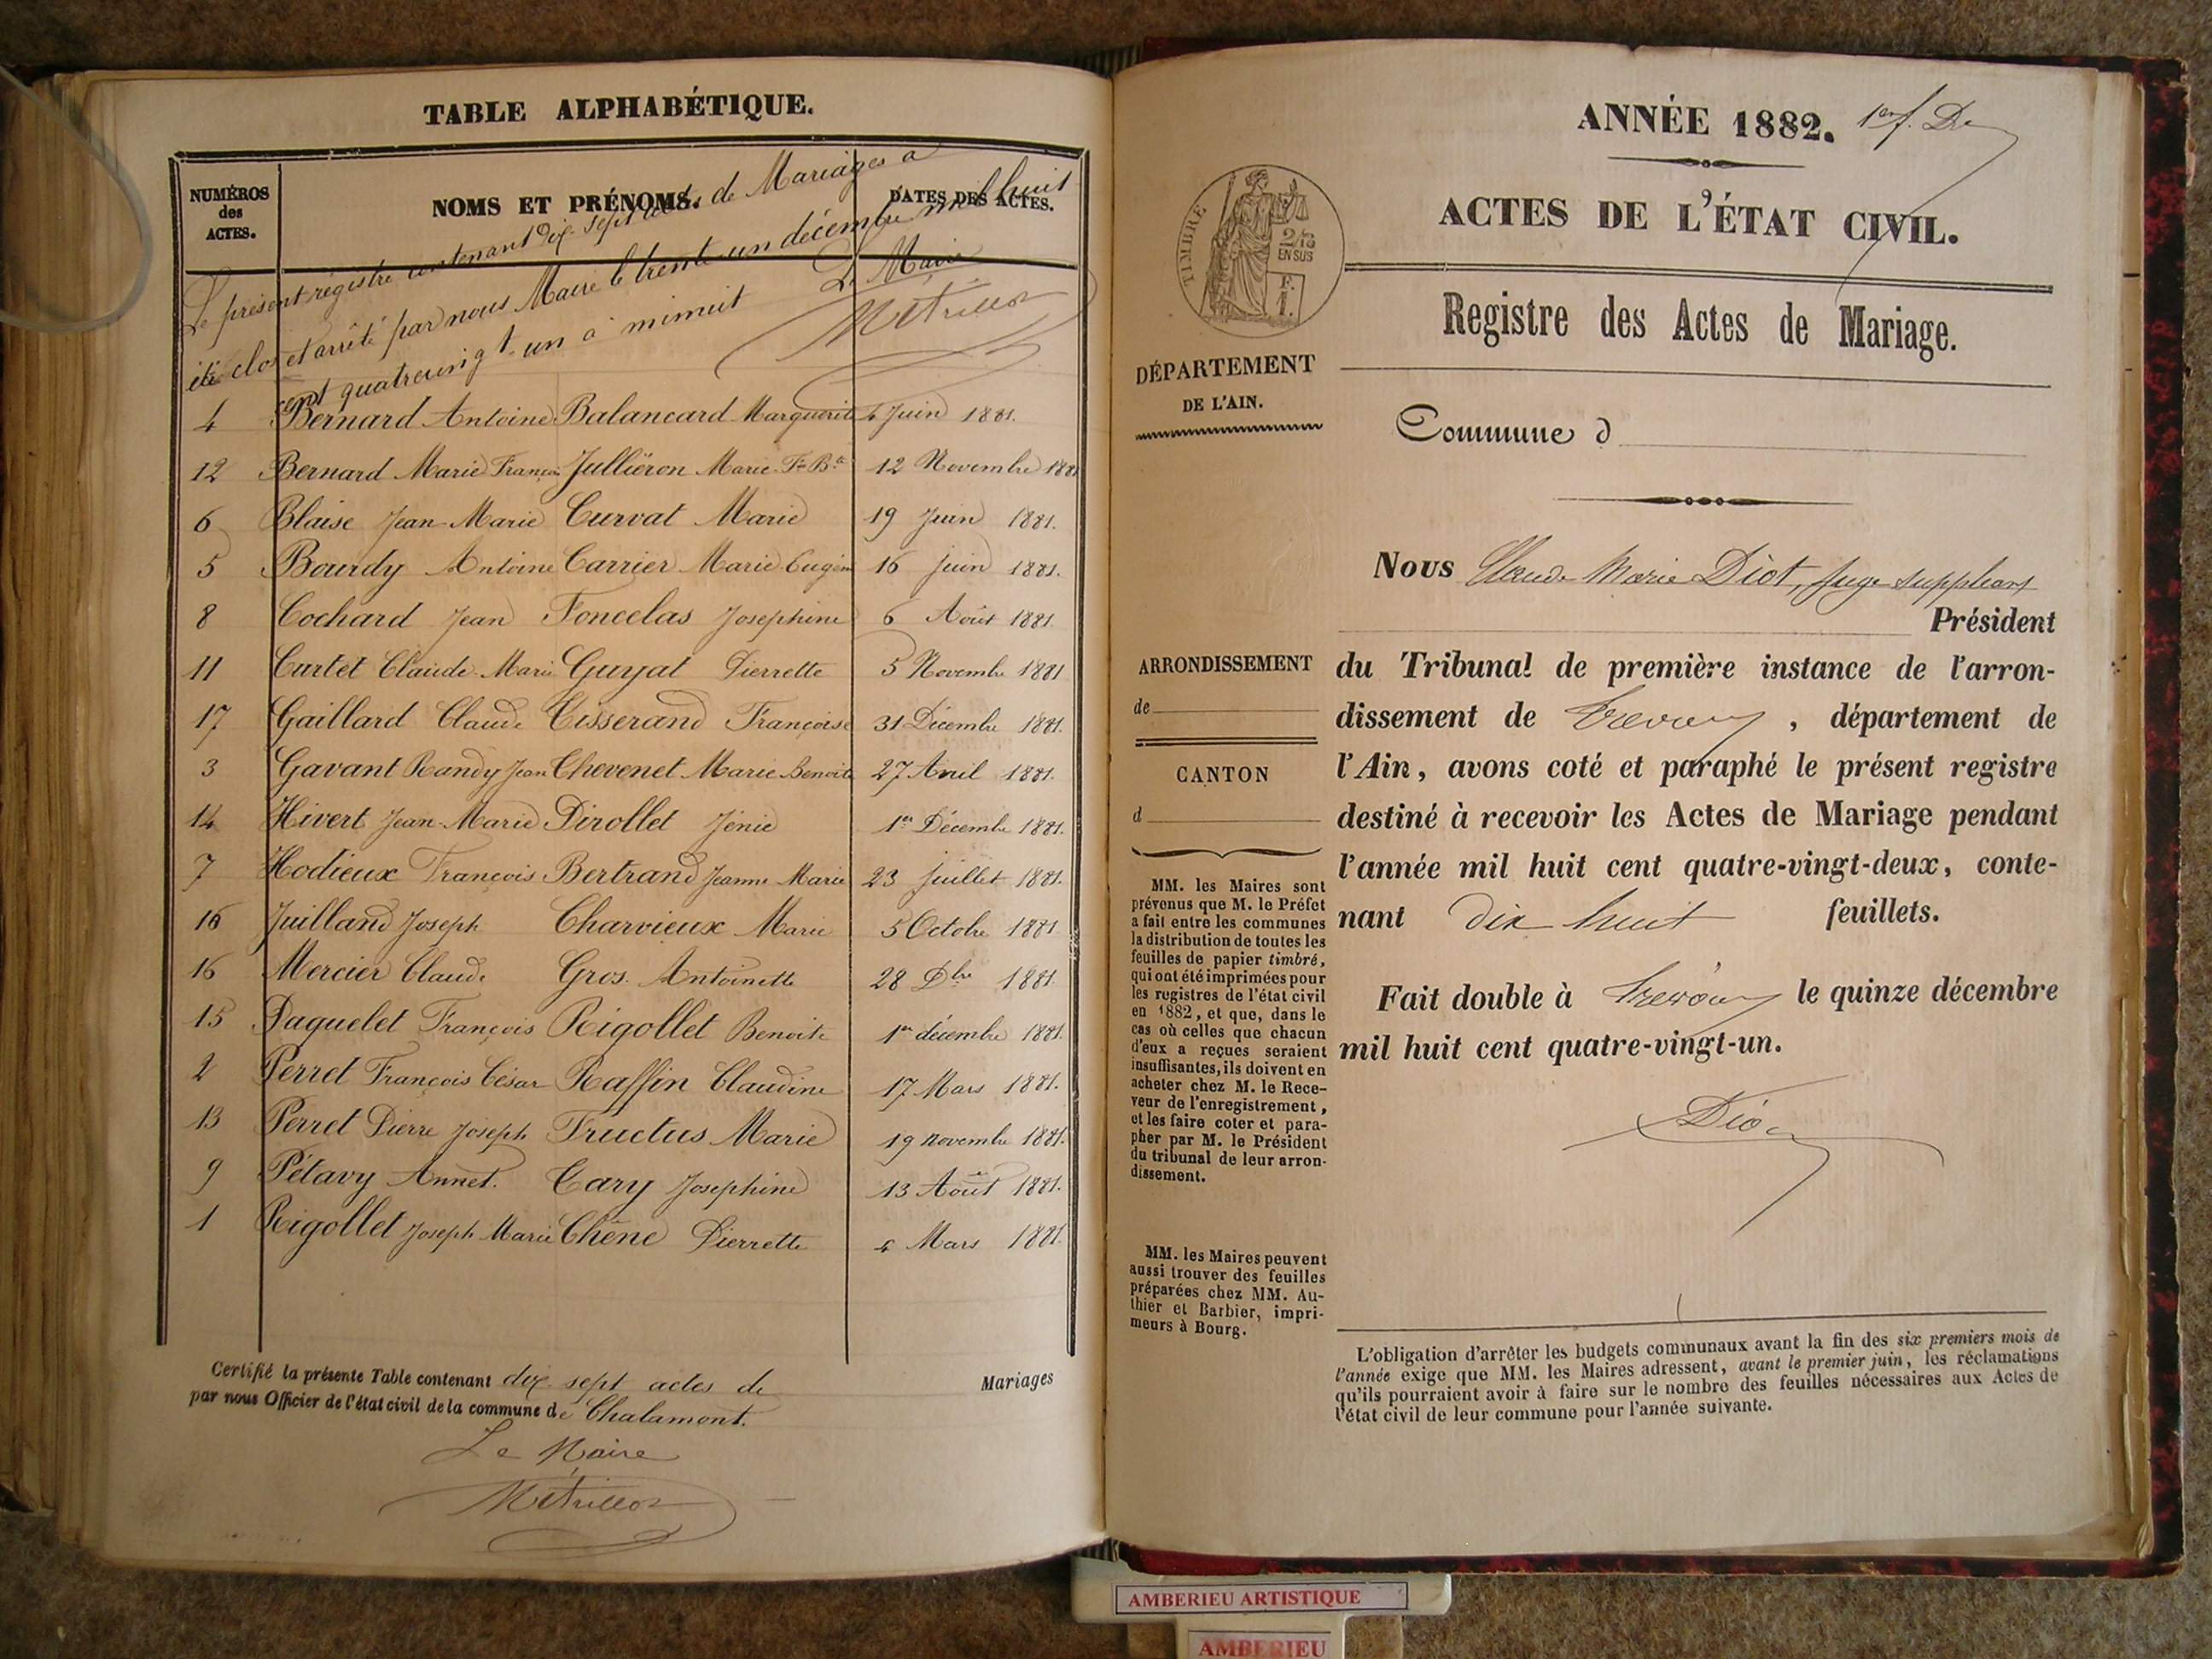 TABLE ALPHABÉTIQUE.
NUMÉROS
des
ACTES.
NOMS ET PRÉNOMS.
DATES DES ACTES.
Le présent registre contenant dix-sept actes de Mariages a
été clos et arrêté par nous Maire le trente-un décembre mil huit
cent quatrevingt-un à minuit
Le Maire
Métrillot
4 Bernard Antoine Balancard Marguerite 4 Juin 1881.
12 Bernard Marie François Jullièron Marie Fse Bte 12 Novembre 1881
6 Blaise Jean-Marie Curvat Marie 19 Juin 1881.
5 Bourdy Antoine Carrier Marie Eugénie 16 juin 1881.
8 Cochard Jean Foncelas Josephine 6 Août 1881.
11 Curtet Claude-Marie Guyat Pierrette 5 Novembre 1881
17 Gaillard Claude Tisserand Françoise 31 Décembre 1881.
3 Gavant Randy Jean Chevenet Marie Benoite 27 Avril 1881.
14 Hivert Jean-Marie Pirollet Jénie 1er Décembre 1881.
7 Hodieux François Bertrand Jeanne Marie 23 juillet 1881.
10 Juilland Joseph Charvieux Marie 5 Octobre 1881
16 Mercier Claude Gros Antoinette 28 Dbre 1881.
15 Paquelet François Rigollet Benoite 1er décembre 1881.
2 Perret François César Raffin Claudine 17 Mars 1881.
13 Perret Pierre Joseph Fructus Marie 19 novembre 1881.
9 Pétavy Annet. Cary Josephine 13 Août 1881.
1 Rigollet Joseph Marie Chêne Pierrette 4 Mars 1881.
Certifié la présente Table contenant dix sept actes de Mariages
par nous Officier de l'état civil de la commune de Chalamont.
Le Maire
Métrillot
ANNÉE 1882. 1er f.
ACTES DE L'ÉTAT CIVIL.
TIMBRE
2/10
EN SUS
F.
1.
Registre des Actes de Mariage.
DÉPARTEMENT
DE L'AIN.
Commune d
Nous Claude Marie Diot, Juge suppléant
Président
ARRONDISSEMENT
de
CANTON
d
du Tribunal de première instance de l'arron-
dissement de Trévoux, département de
l'Ain, avons coté et paraphé le présent registre
destiné à recevoir les Actes de Mariage pendant
l'année mil huit cent quatre-vingt-deux, conte-
nant dix huit feuillets.
Fait double à Trévoux le quinze décembre
mil huit cent quatre-vingt-un.
Diot
MM. les Maires sont
prévenus que M. le Préfet
a fait entre les communes
la distribution de toutes les
feuilles de papier timbré,
qui ont été imprimées pour
les registres de l'état civil
en 1882, et que, dans le
cas où celles que chacun
d'eux a reçues seraient
insuffisantes, ils doivent en
acheter chez M. le Rece-
veur de l'enregistrement,
et les faire coter et para-
pher par M. le Président
du tribunal de leur arron-
dissement.
MM. les Maires peuvent
aussi trouver des feuilles
préparées chez MM. Au-
thier et Barbier, impri-
meurs à Bourg.
L'obligation d'arrêter les budgets communaux avant la fin des six premiers mois de
l'année exige que MM. les Maires adressent, avant le premier juin, les réclamations
qu'ils pourraient avoir à faire sur le nombre des feuilles nécessaires aux Actes de
l'état civil de leur commune pour l'année suivante.
AMBERIEU ARTISTIQUE
AMBERIEU